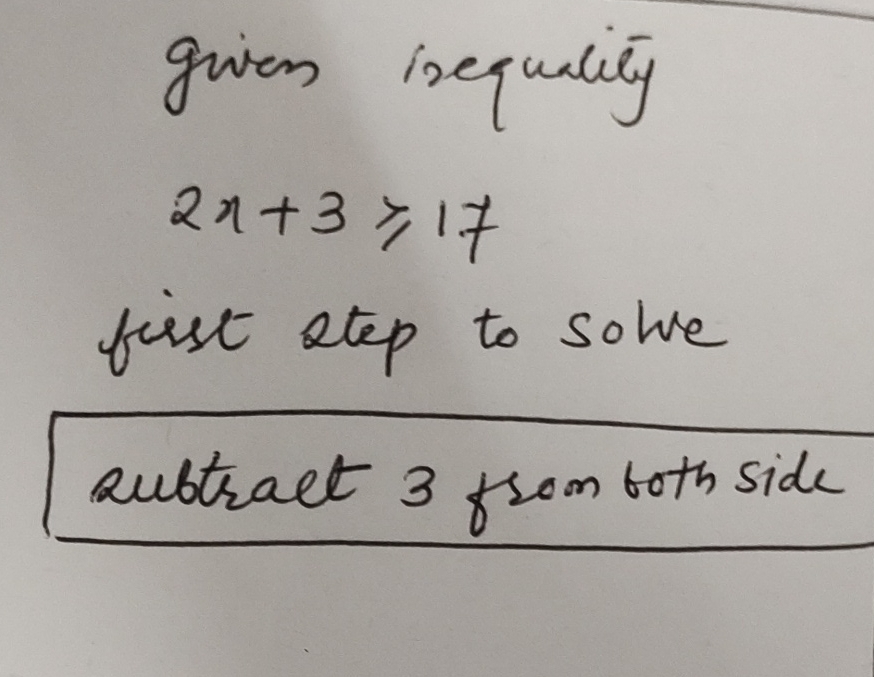 given inequality
2x + 3 ⩾ 17
first step to solve
subtract 3 from both side